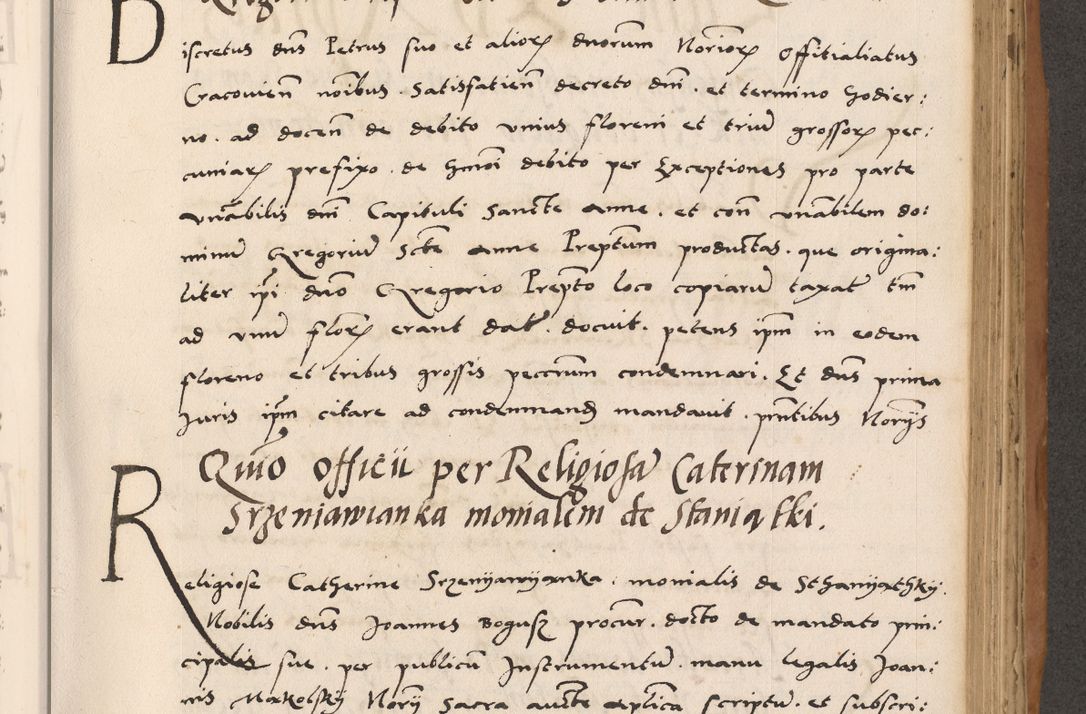 Discretus dns Petrus suo et alior dnorum Norior Offitialiatus
Cracovien noibus . Satisfatien decreto dni . et termino hodier:
no . ad docen de debito unius floreni et triu grossor pec:
cuniar prefixo . de hmoi debito per Exceptiones pro parte
vnabilis dni Capituli Sancte Anne . et con vnabilem do:
minu Gregoriu Scte Anne Preptum productas . que origina:
liter ipi dno Gregorio Prepto loco copiaru taxat tm
ad vnu flor erant dat . docuit . petens ipm in eodem
floreno et tribus grossis peccrum condemnari . Et dns prima
Juris ipm citare ad condemnand mandavit . pntibus Noriis
Officii per Religiosa Caterinam
Srzeniawianka monialem de Staniątki .
Religiose Catherine Srzenyawyanka . monialis de Sthanyathky .
Nobilis dns Joannes Bogusz procur . docto de mandato prin:
cipalis sue . per publicu Instrumentu . manu legalis Joan:
nis Makolsky Nory Sacra aucte aplica scriptu . et subscri: